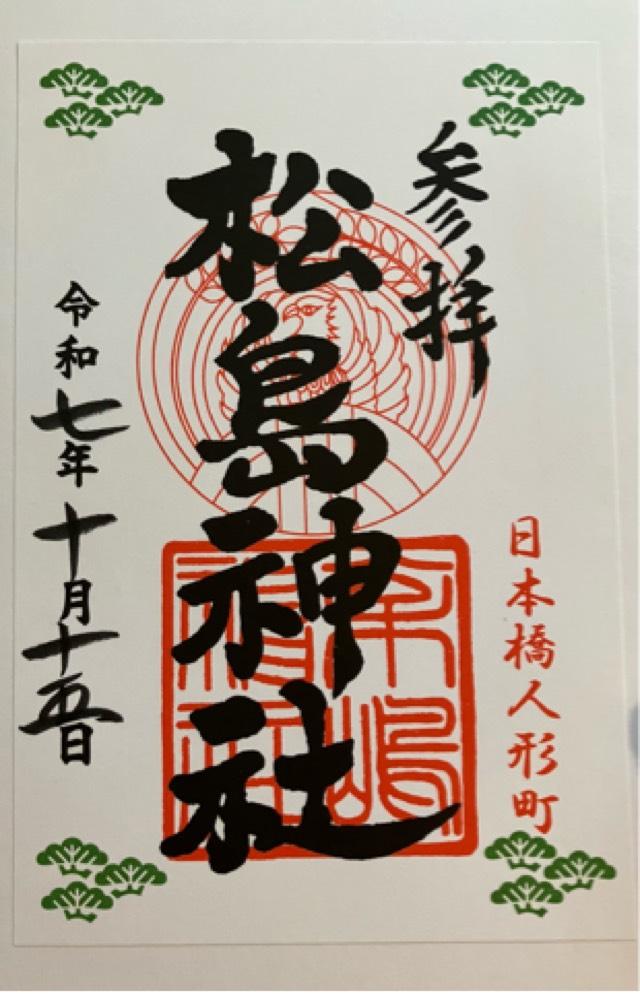 参拝
日本橋人形町
松島神社
令和七年十月十五日